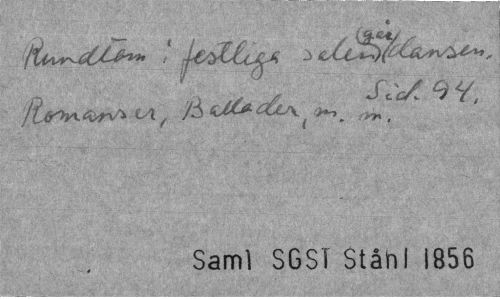 Rundtom i festliga salen (går) dansen.
Romanser, Ballader, m. m. Sid. 94.
Saml SGST Ståhl 1856